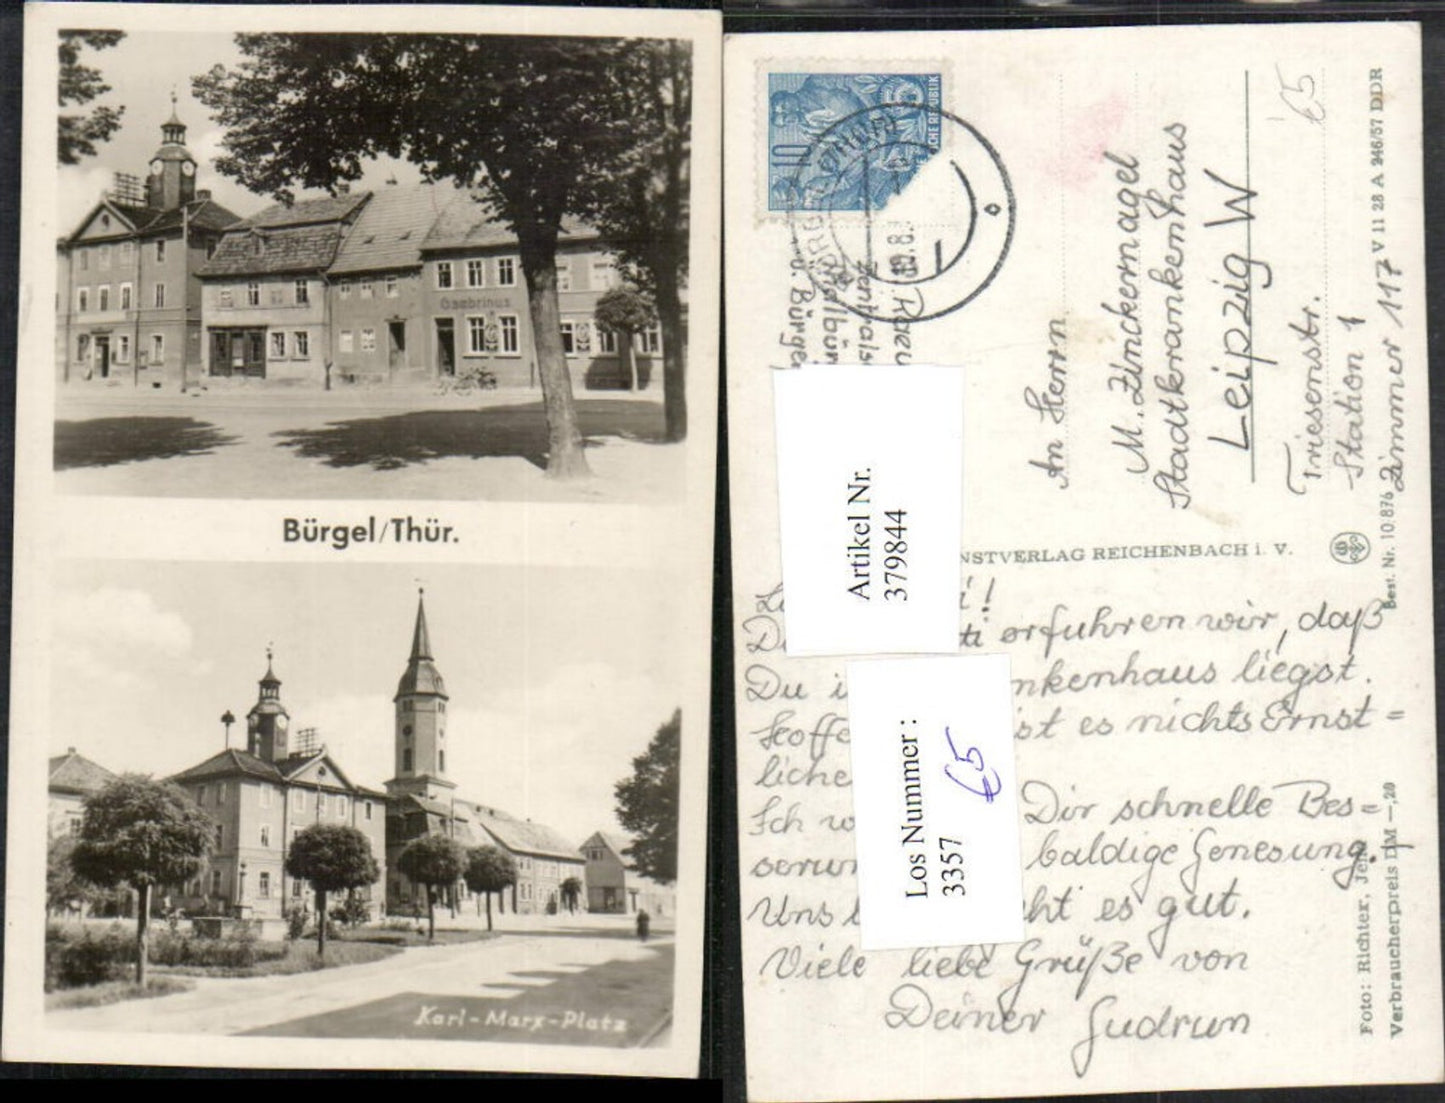 Gambrinus
Bürgel/Thür.
Karl-Marx-Platz
10
CHE REPUBLIK
An Herrn
M. Zinckernagel
Stadtkrankenhaus
Leipzig W
Triesenstr.
Station 1
Zimmer 117
€5
V 11 28 A 246/57 DDR
Best. Nr. 10.876
NSTVERLAG REICHENBACH i. V.
Artikel Nr.
379844
Los Nummer :
3357
€5
erfuhren wir, daß
Du nkenhaus liegst.
Hoffe ist es nichts Ernst=
liche
Ich Dir schnelle Bes=
serun baldige Genesung.
Uns ht es gut.
Viele liebe Grüße von
Deiner Gudrun
Foto: Richter, Jena
Verbraucherpreis DM —,20